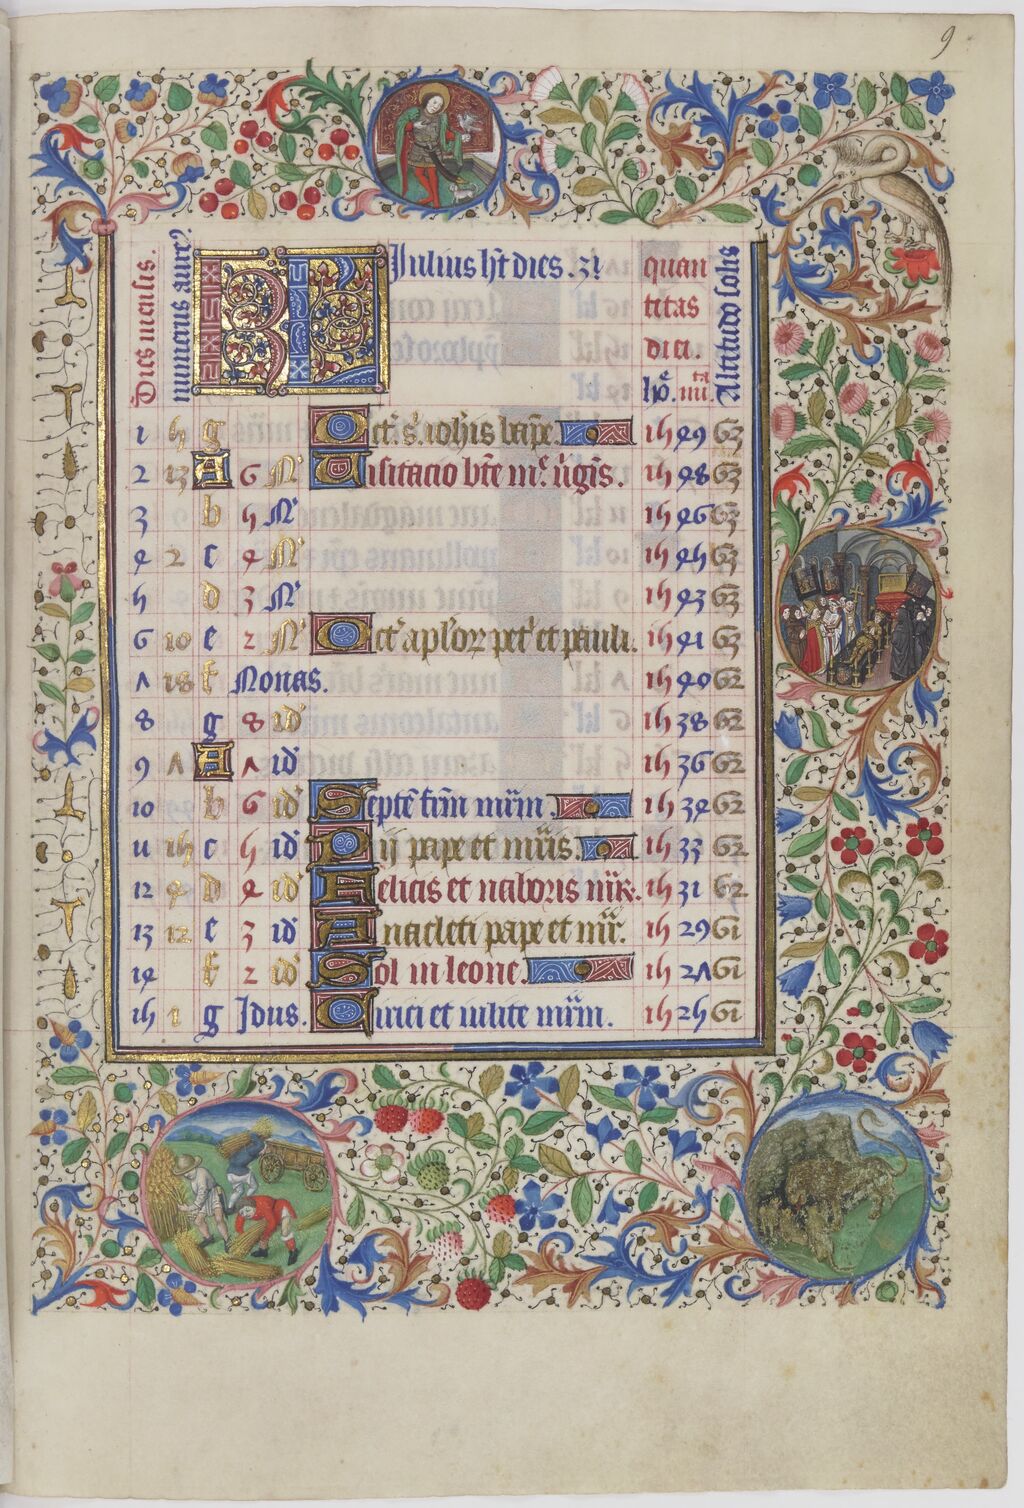 9
Dies mensis.
numerus aure9
KL Iulius ht dies. 31
quan
titas
diei.
ho. mi.
Altitudo solis
1 h g Oct. s. iohis bapte. 1h 49 63
2 13 A 6 N Visitacio bte me. uirgis. 1h 48 63
3 b h N 1h 46 63
4 2 c 4 N 1h 4h 63
h d 3 N 1h 43 63
6 10 e 2 N Oct aplor petri et pauli. 1h 41 63
ʌ 18 f Nonas. 1h 40 62
8 g 8 id 1h 38 62
9 ʌ A ʌ id 1h 36 62
10 b 6 id Septe frm mrm. 1h 34 62
11 1h c h id Pij pape et mris. 1h 33 62
12 4 d 4 id Felicis et naboris mr. 1h 31 62
13 12 e 3 id Anacleti pape et mr. 1h 29 61
14 f 2 id Sol in leone. 1h 2ʌ 61
1h 1 g Idus. Cirici et iulite mrm. 1h 2h 61